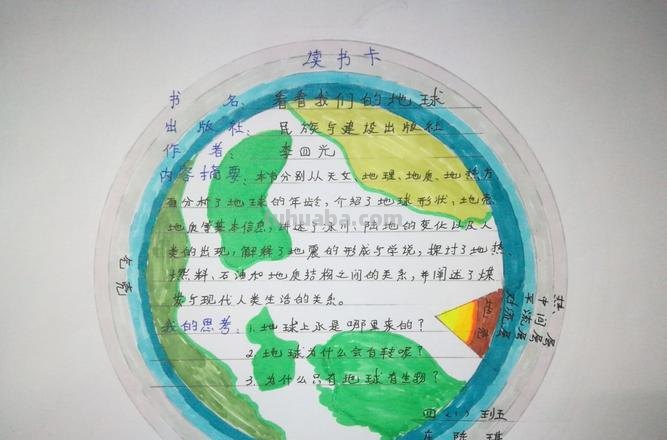 读书卡
书 名：看看我们的地球
出版社：民族与建设出版社
作 者：李四光
内容摘要：本书分别从天文、地理、地质、地热方
面分析了地球的年龄，介绍了地球形状，地壳
地质等基本信息，讲述了冰川、陆地的变化以及人
类的出现，解释了地震的形成与学说，探讨了地热、
燃料、石油和地质结构之间的关系，并阐述了煤
炭与现代人类生活的关系。
我的思考：1.地球上水是哪里来的？
2.地球为什么会自转呢？
3.为什么只有地球有生物？
四（1）班
热
中间层
平流层
对流层
地壳
uhuaba.com